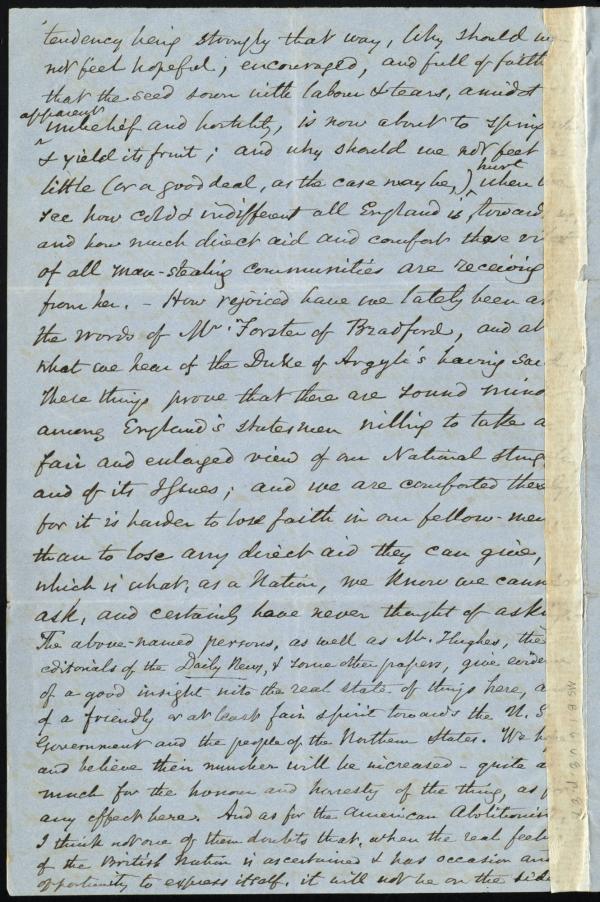 tendency being strongly that way, Why should we
not feel hopeful; encouraged, and full of faith
that the seed sown with labour & tears, amidst
apparent
unbelief and hostility, is now about to spring
& yield its fruit; and why should we not feel a
little (or a good deal, as the case may be,) hurt when we
see how cold & indifferent all England is, toward
and how much direct aid and comfort those
of all man-stealing communities are receiving
from her. - How rejoiced have we lately been at
the words of Mr. Forster of Bradford, and at
what we hear of the Duke of Argyle's having said
These things prove that there are sound minds
among England's statesmen willing to take a
fair and enlarged view of our National strug
and of its Issues; and we are comforted there
for it is harder to lose faith in our fellow-men
than to lose any direct aid they can give,
which is what, as a Nation, we know we cannot
ask, and certainly have never thought of ask
The above-named persons, as well as Mr. Hughes, the
editorials of the Daily News, & some other papers, give eviden
of a good insight into the real state of things here, and
of a friendly or at least fair spirit towards the U. S.
Government and the people of the Northern States. We hope
and believe their number will be increased - quite as
much for the honour and honesty of the thing, as for
any effect here. And as for the American Abolitionis
I think not one of them doubts that, when the real feel
of the British Nation is ascertained & has occasion and
opportunity to express itself, it will not be on the side
MS.B.1.6 v.